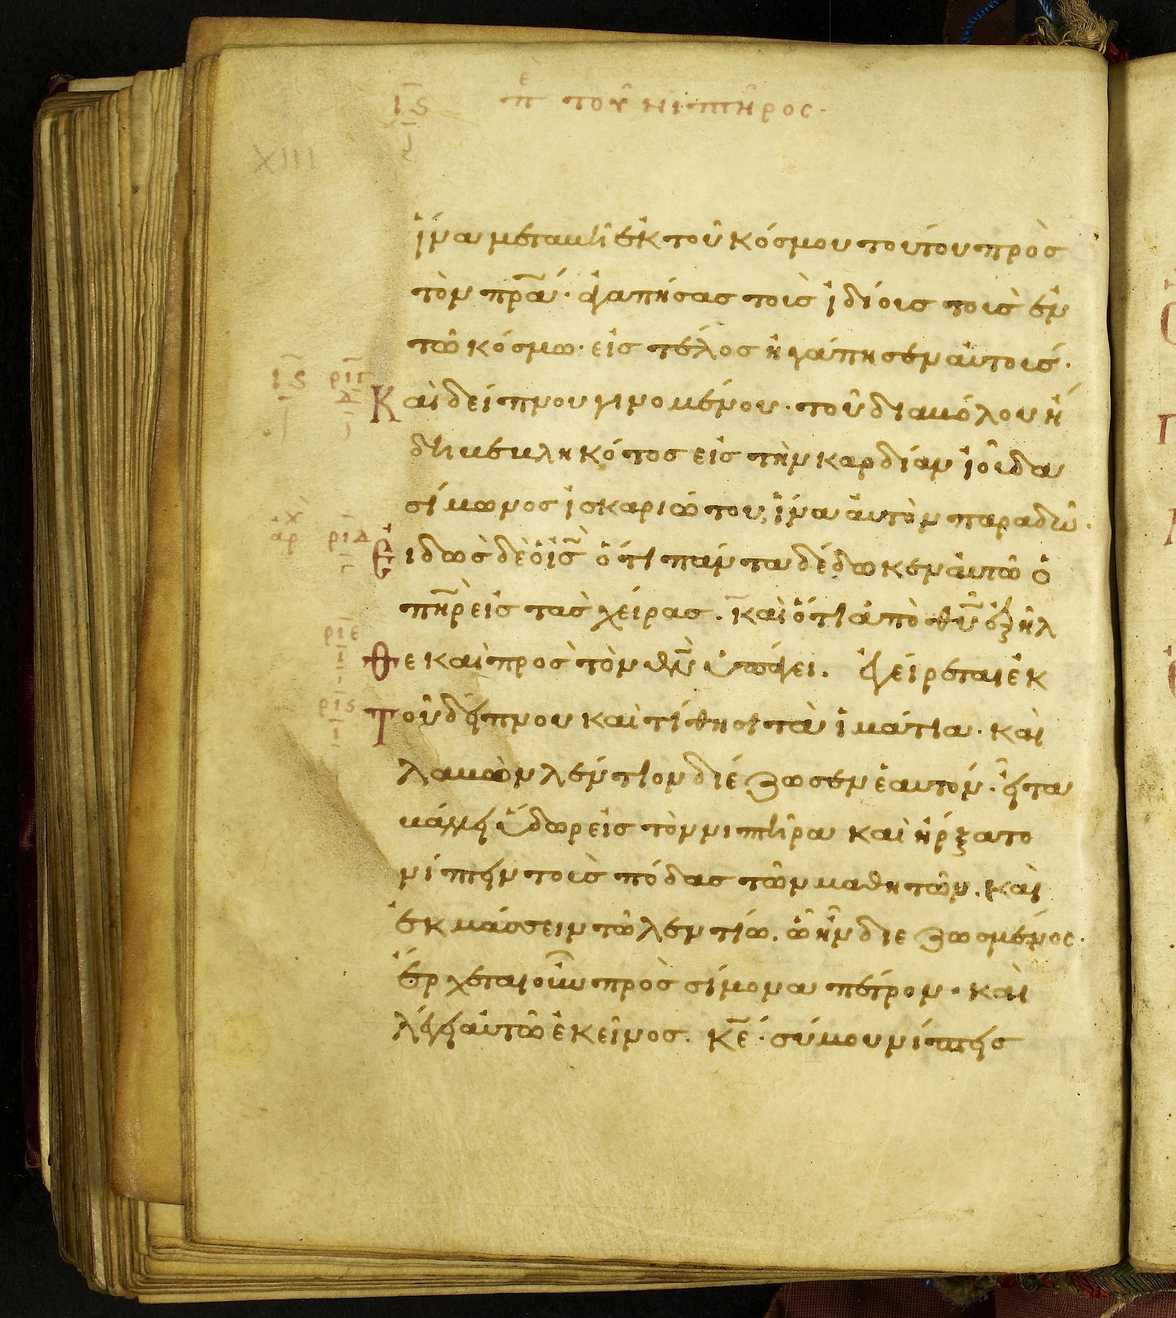 ιϛ πε τοῦ νιπτῆρος·
XIII
ἵνα μεταβῆ ἐκ τοῦ κόσμου τούτου πρὸς
τὸν πρ̅α· ἀγαπήσας τοὺς ἰδίους τοὺς ἐν
τῶ κόσμω· εἰς τέλος ἠγάπησεν αὐτούς·
ιϛ ριγ Καὶ δείπνου γινομένου· τοῦ διαβόλου ἤ
δη βεβληκότος εἰς τὴν καρδίαν ἰούδα
σίμωνος ἰσκαριώτου, ἵνα αὐτὸν παραδῶ·
ἀρχ ριδ Εἰδὼς δὲ ὁ ι̅ς̅ ὅτι πάντα δέδωκεν αὐτῶ ὁ
πη̅ρ εἰς τὰς χεῖρας. καὶ ὅτι ἀπὸ θ̅υ̅ ἐξῆλ
ριε θε καὶ πρὸς τὸν θ̅ν̅ ὑπάγει. ἐγείρεται ἐκ
ριϛ Τοῦ δείπνου καὶ τίθησι τὰ ἱμάτια· καὶ
λαβὼν λέντιον διέζωσεν ἑαυτόν· εἶτα
βάλλει ὕδωρ εἰς τὸν νιπτῆρα καὶ ἤρξατο
νίπτειν τοὺς πόδας τῶν μαθητῶν. καὶ
ἐκμάσσειν τῶ λεντίω. ὧ ἦν διεζωσμένος·
ἔρχεται οὖν πρὸς σίμονα πέτρον· καὶ
λέγει αὐτῶ ἐκεῖνος. κ̅ε̅· σύ μου νίπτεις